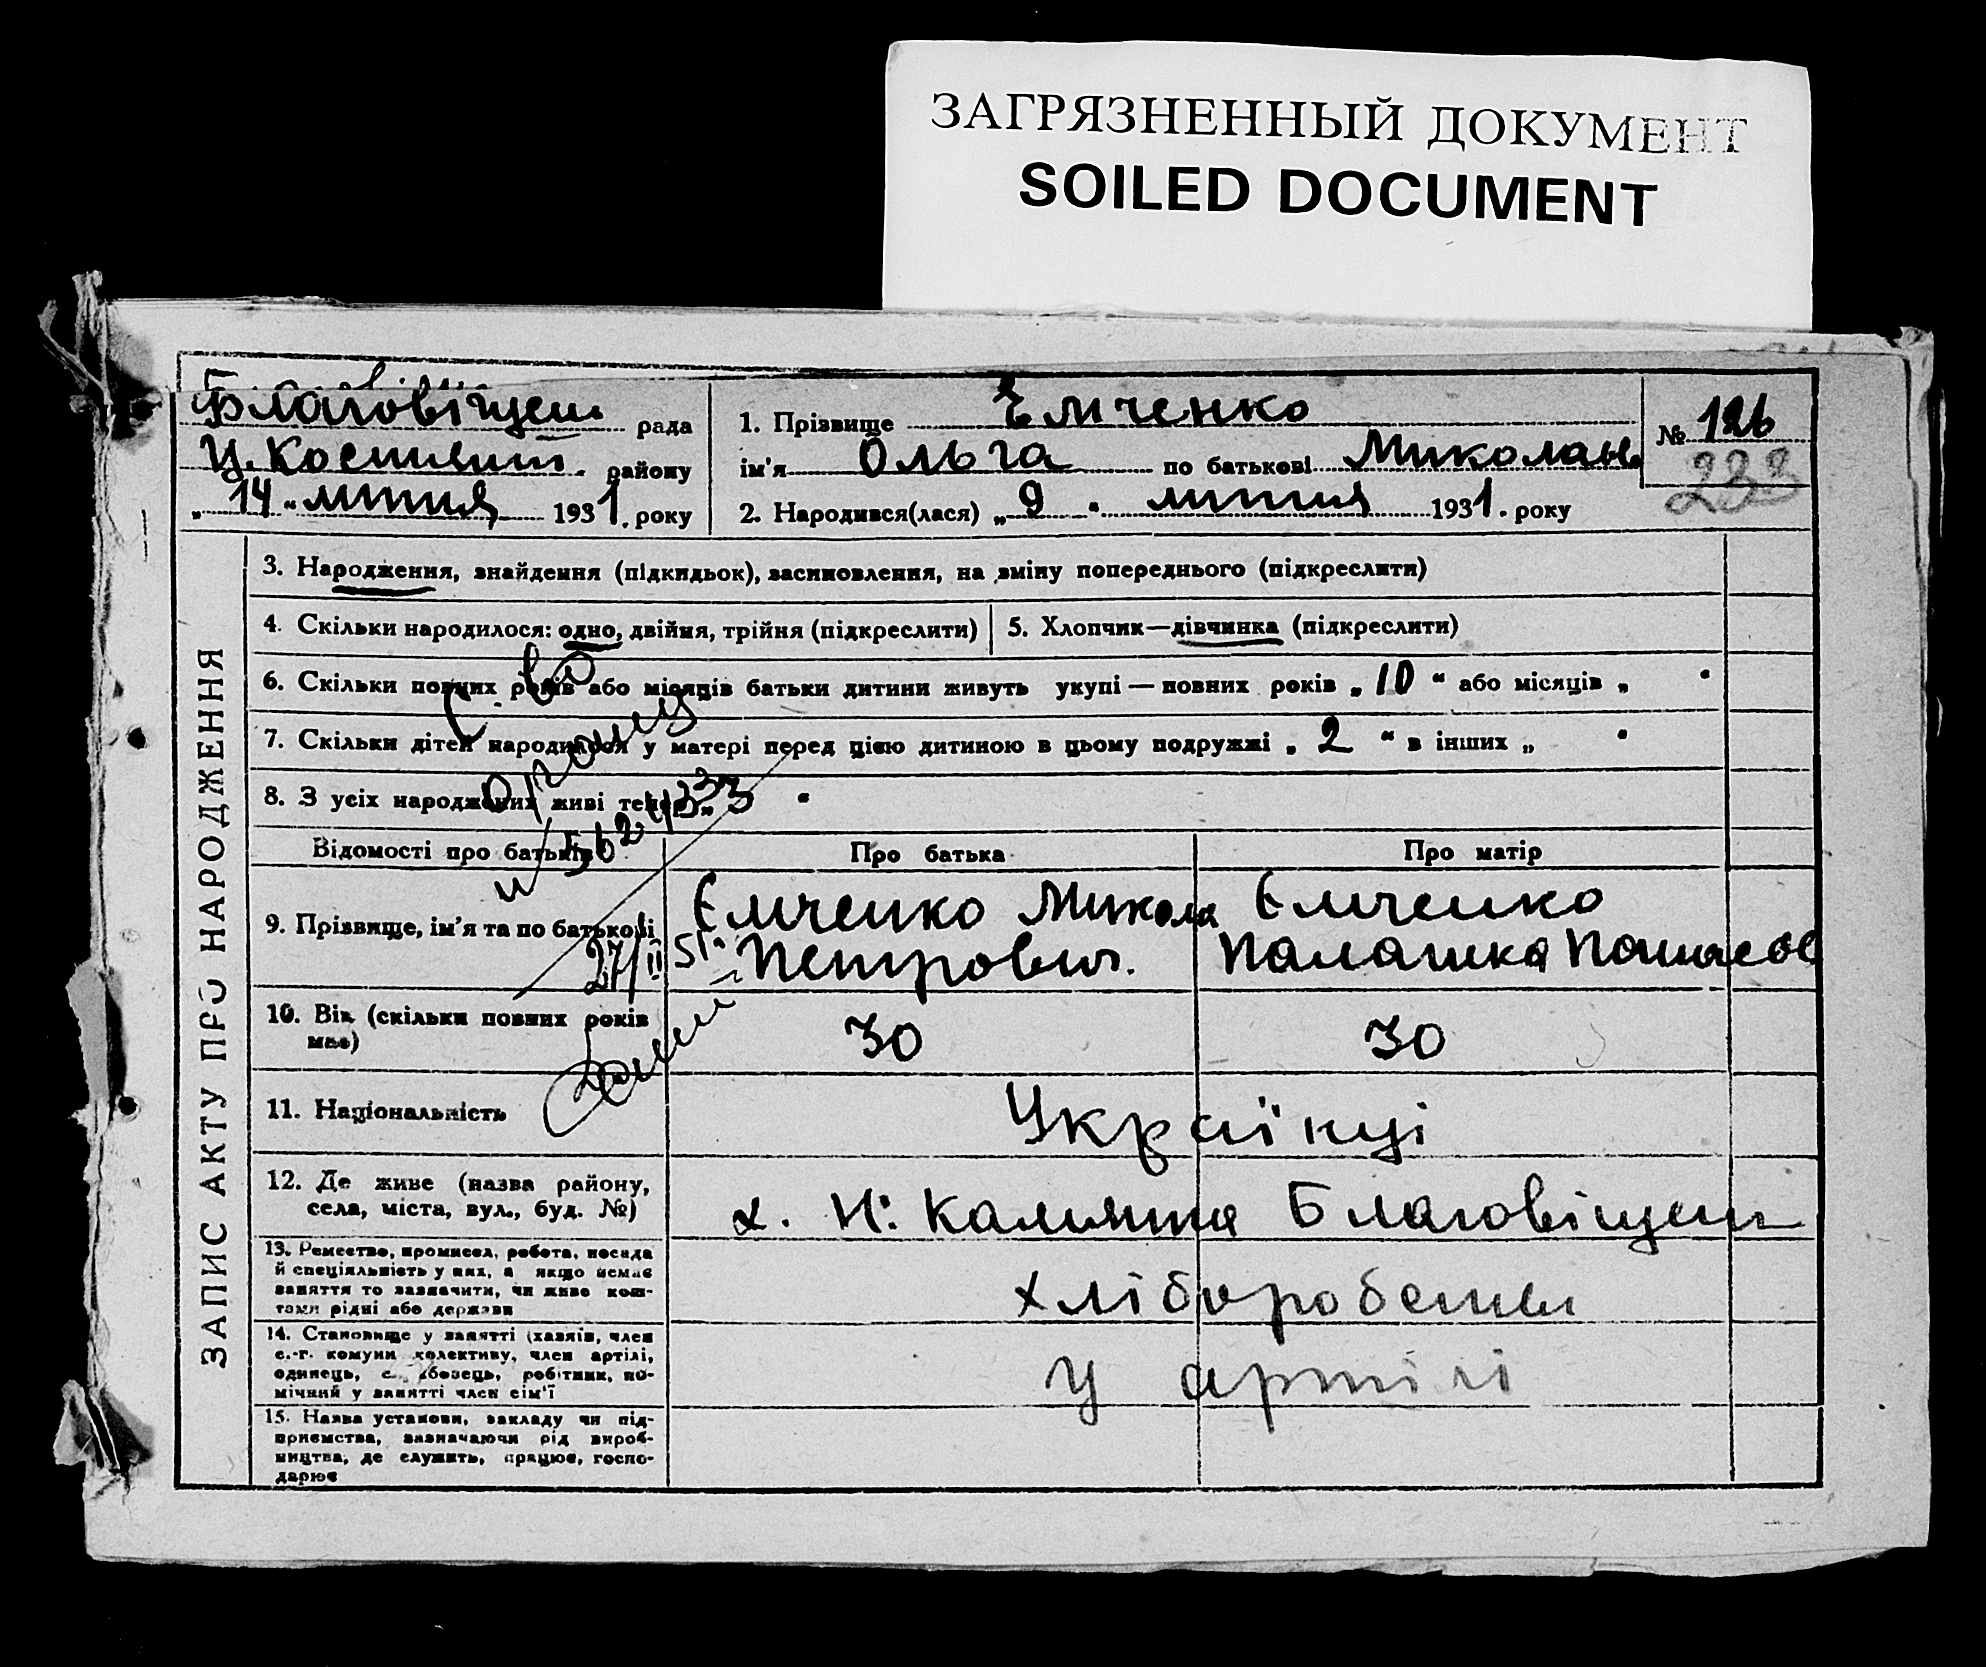 ЗАГРЯЗНЕННЫЙ ДОКУМЕНТ
SOILED DOCUMENT
Благовіщен. рада
Ц. Костянт. району
„14“ липня 1931. року
1. Прізвище Ємченко
ім'я Ольга по батькові Миколаїв.
2. Народився(лася) „9“ липня 1931. року
№ 126
232
ЗАПИС АКТУ ПРО НАРОДЖЕННЯ
3. Народження, знайдення (підкидьок), засиновлення, на зміну попереднього (підкреслити)
4. Скільки народилося: одно, двійня, трійня (підкреслити)
5. Хлопчик—дівчинка (підкреслити)
6. Скільки повних років або місяців батьки дитини живуть укупі — повних років „10“ або місяців „ “
7. Скільки дітей народилося у матері перед цією дитиною в цьому подружжі „2“ в інших „ “
8. З усіх народжених живі тепер „3“
Відомості про батьків
Про батька
Про матір
9. Прізвище, ім'я та по батькові
Ємченко Микола
Петрович.
Ємченко
Палашка Панасов
27/II 51
10. Вік (скільки повних років
має)
30
30
11. Національність
Українці
12. Де живе (назва району,
села, міста, вул., буд. №)
х. Н: Калитта Благовіщен
13. Ремество, промисел, робота, посада
й спеціяльність у них, а якщо немає
заняття то зазначити, чи живе кош-
тами рідні або держави
хліборобств
14. Становище у занятті (хазяїн, член
с.-г. комуни колективу, член артілі,
одинець, робітник, по-
мічний у занятті член сім'ї
у артілі
15. Назва установи, закладу чи під-
приємства, зазначаючи рід вироб-
ництва, де служить, працює, госпо-
дарює